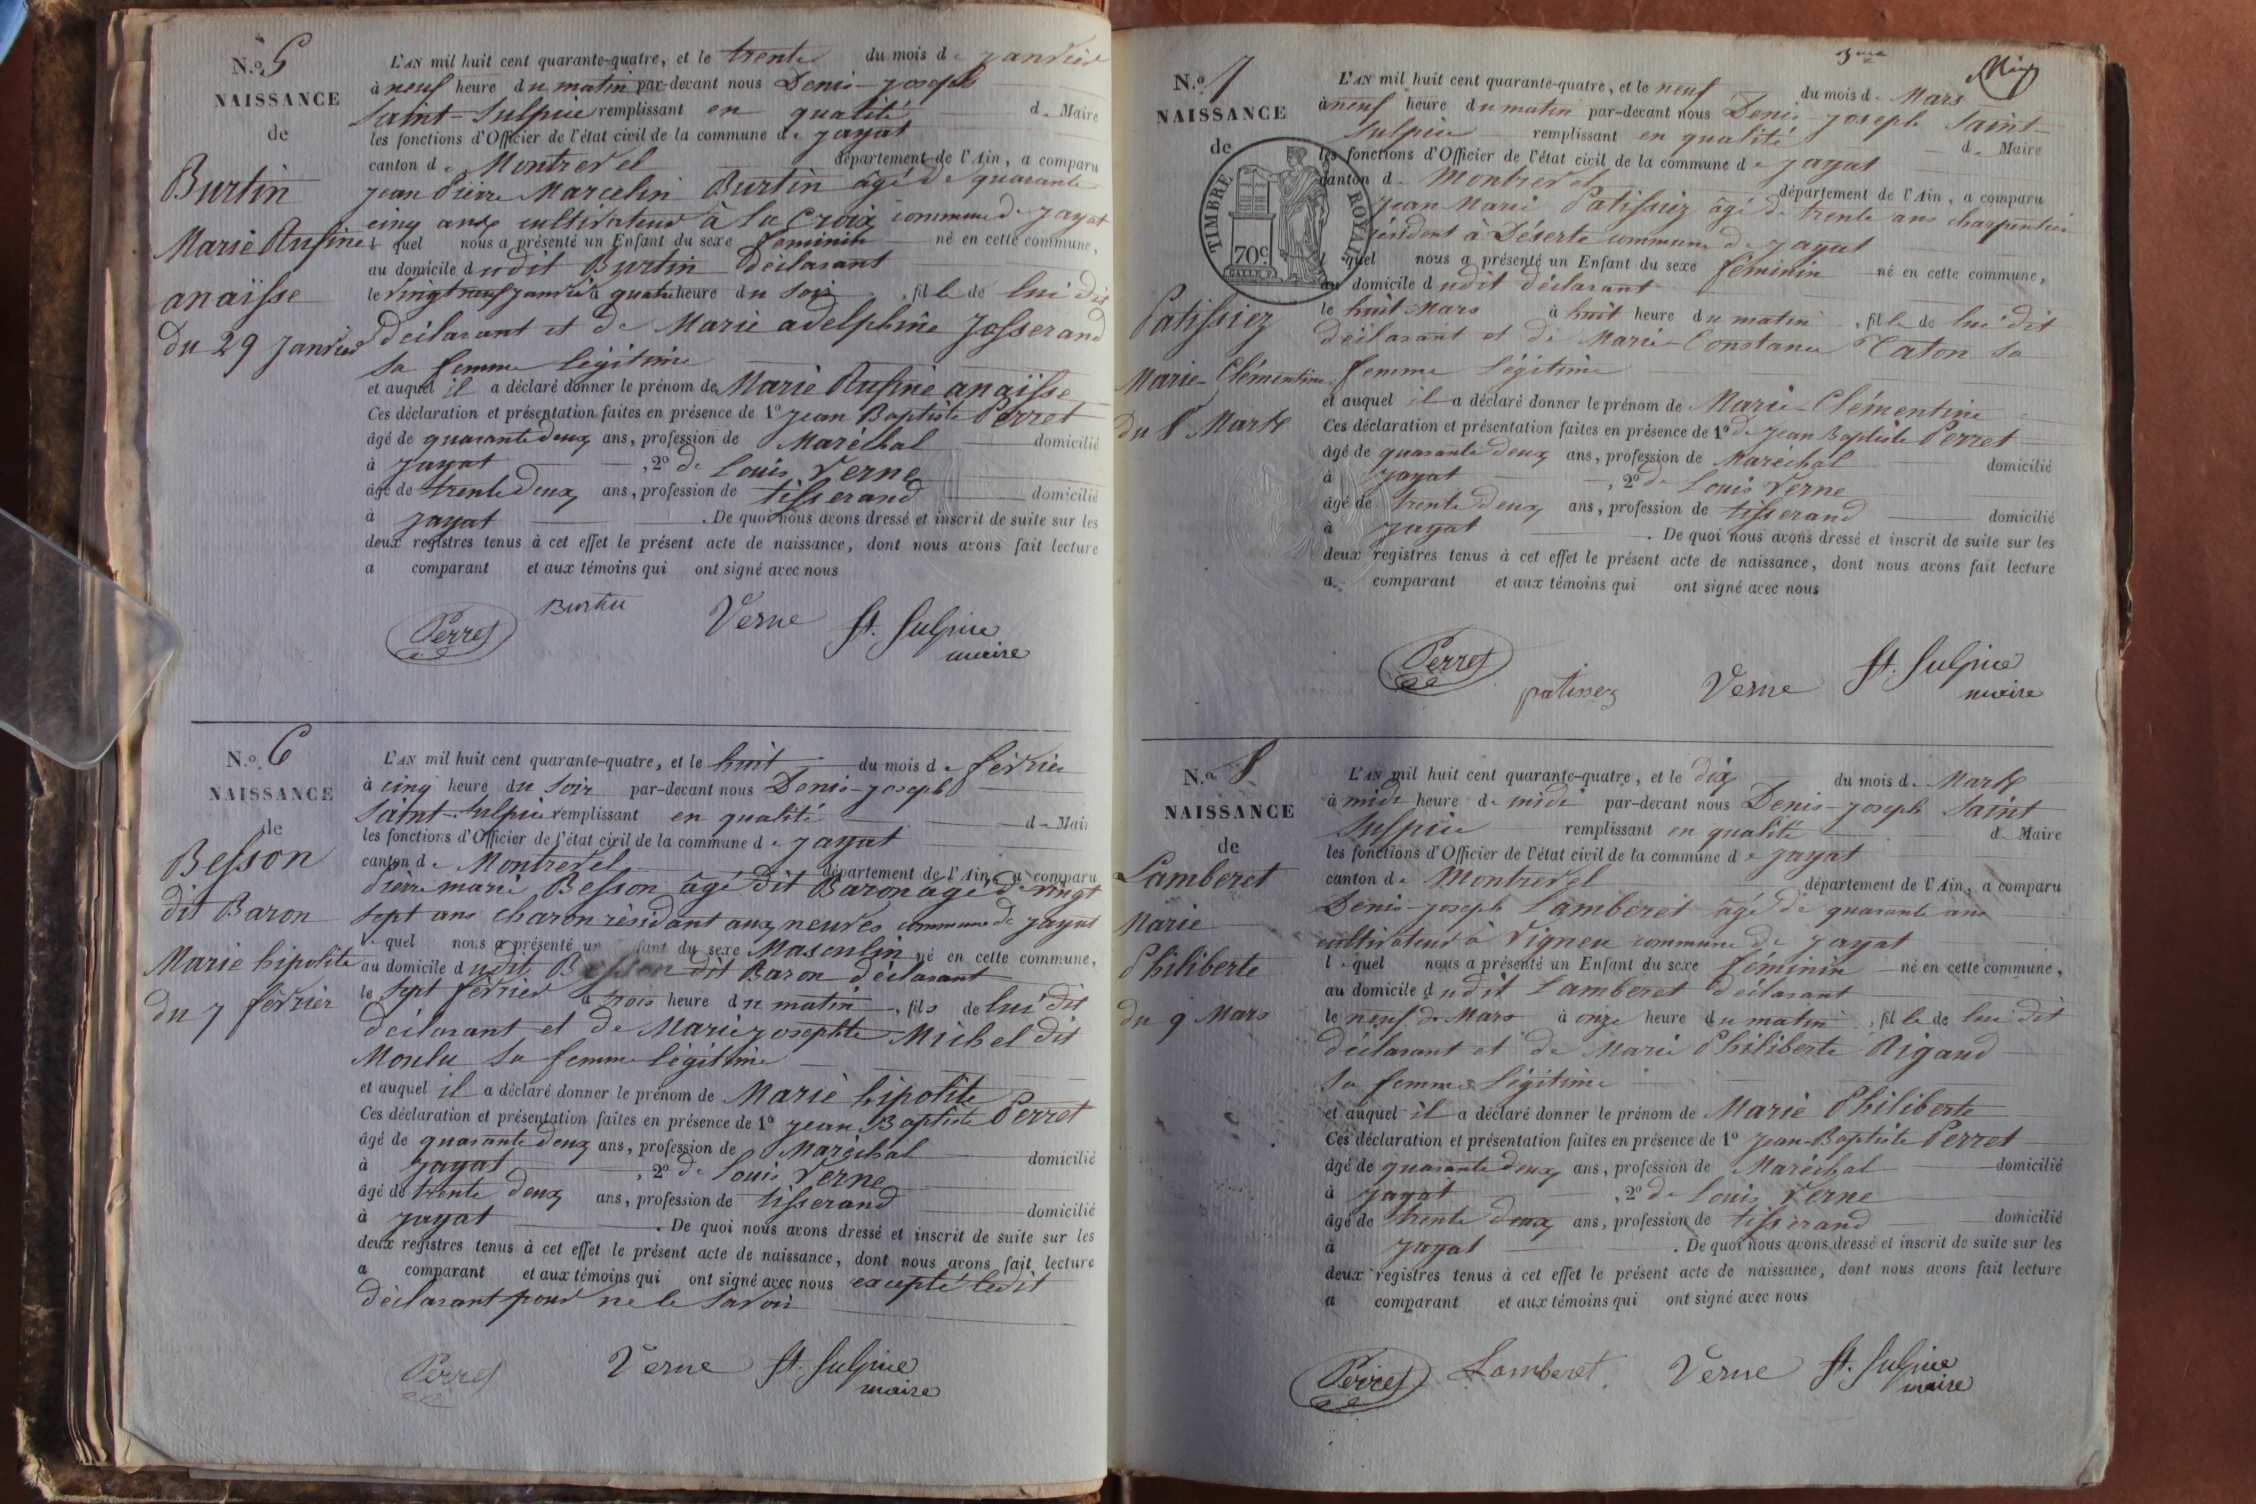 N.o 5
NAISSANCE
de
Burtin
Marie Rufine
anaïsse
du 29 Janvier
L'AN mil huit cent quarante-quatre, et le trente du mois de janvier
à neuf heure du matin par-devant nous Denis-joseph
Saint-Sulpice remplissant en qualité de Maire
les fonctions d'Officier de l'état civil de la commune de jayat
canton de Montrevel département de l'Ain, a comparu
jean Pierre Marcelin Burtin âgé de quarante
cinq ans cultivateur à la Croix commune de jayat
lequel nous a présenté un Enfant du sexe feminin né en cette commune,
au domicile dudit Burtin déclarant
le vingt neuf janvier à quatre heure du soir, fille de lui dit
déclarant et de Marie adelphine Josserand
sa femme légitime
et auquel il a déclaré donner le prénom de Marie Rufine anaïsse
Ces déclaration et présentation faites en présence de 1o jean Baptiste Perret
âgé de quarante deux ans, profession de Maréchal domicilié
à jayat, 2o de Louis Verne
âgé de trente deux ans, profession de tisserand domicilié
à jayat. De quoi nous avons dressé et inscrit de suite sur les
deux registres tenus à cet effet le présent acte de naissance, dont nous avons fait lecture
a comparant et aux témoins qui ont signé avec nous
Perret Burtin Verne St. Sulpice
maire
N.o 6
NAISSANCE
de
Besson
dit Baron
Marie hipolite
du 7 février
L'AN mil huit cent quarante-quatre, et le huit du mois de février
à cinq heure du soir par-devant nous Denis-joseph
Saint-Sulpice remplissant en qualité de Maire
les fonctions d'Officier de l'état civil de la commune de jayat
canton de Montrevel département de l'Ain, a comparu
Pierre marie Besson âgé dit Baron âgé de vingt
sept ans charon résidant aux neures commune de jayat
lequel nous a présenté un fant du sexe Masculin né en cette commune,
au domicile dudit Besson dit Baron déclarant
le sept février à trois heure du matin, fils de lui dit
déclarant et de Marie josephte Michel dit
Moulu sa femme légitime
et auquel il a déclaré donner le prénom de Marie hipolite
Ces déclaration et présentation faites en présence de 1o jean Baptiste Perret
âgé de quarante deux ans, profession de Maréchal
à jayat, 2o de Louis Verne domicilié
âgé de trente deux ans, profession de tisserand
à jayat. domicilié
De quoi nous avons dressé et inscrit de suite sur les
deux registres tenus à cet effet le présent acte de naissance, dont nous avons fait lecture
a comparant et aux témoins qui ont signé avec nous excepté ledit
déclarant pour ne le savoir
Perret Verne St. Sulpice
maire
3me
N.o 7
NAISSANCE
de
TIMBRE ROYAL
70c.
Patissiez
Marie-Clémentine
du 8 Mars
L'AN mil huit cent quarante-quatre, et le neuf du mois de Mars
à neuf heure du matin par-devant nous Denis-joseph Saint-
Sulpice remplissant en qualité de Maire
les fonctions d'Officier de l'état civil de la commune de jayat
canton de Montrevel département de l'Ain, a comparu
jean Marie Patissiez âgé de trente ans charpentier
résident à Déserte commune de jayat
lequel nous a présenté un Enfant du sexe féminin né en cette commune,
au domicile dudit déclarant
le huit Mars à huit heure du matin, fille de lui dit
déclarant et de Marie-Constance Caton sa
femme légitime
et auquel il a déclaré donner le prénom de Marie-Clémentine
Ces déclaration et présentation faites en présence de 1o de jean Baptiste Perret
âgé de quarante deux ans, profession de Maréchal domicilié
à jayat, 2o de Louis Verne
âgé de trente deux ans, profession de tisserand domicilié
à jayat. De quoi nous avons dressé et inscrit de suite sur les
deux registres tenus à cet effet le présent acte de naissance, dont nous avons fait lecture
a comparant et aux témoins qui ont signé avec nous
Perret patissiez Verne St. Sulpice
maire
N.o 8
NAISSANCE
de
Lamberet
Marie
Philiberte
du 9 Mars
L'AN mil huit cent quarante-quatre, et le dix du mois de Mars
à midi heure de midi par-devant nous Denis-joseph Saint
Sulpice remplissant en qualité de Maire
les fonctions d'Officier de l'état civil de la commune de jayat
canton de Montrevel département de l'Ain, a comparu
Denis-joseph Lamberet âgé de quarante ans
cultivateur à Vigneu commune de jayat
lequel nous a présenté un Enfant du sexe féminin né en cette commune,
au domicile dudit Lamberet déclarant
le neuf de Mars à onze heure du matin, fille de lui dit
déclarant et de Marie Philiberte Rigaud
sa femme légitime
et auquel il a déclaré donner le prénom de Marie Philiberte
Ces déclaration et présentation faites en présence de 1o jean-Baptiste Perret
âgé de quarante deux ans, profession de Maréchal domicilié
à jayat, 2o de Louis Verne
âgé de trente deux ans, profession de tisserand domicilié
à jayat. De quoi nous avons dressé et inscrit de suite sur les
deux registres tenus à cet effet le présent acte de naissance, dont nous avons fait lecture
a comparant et aux témoins qui ont signé avec nous
Perret Lamberet Verne St. Sulpice
maire